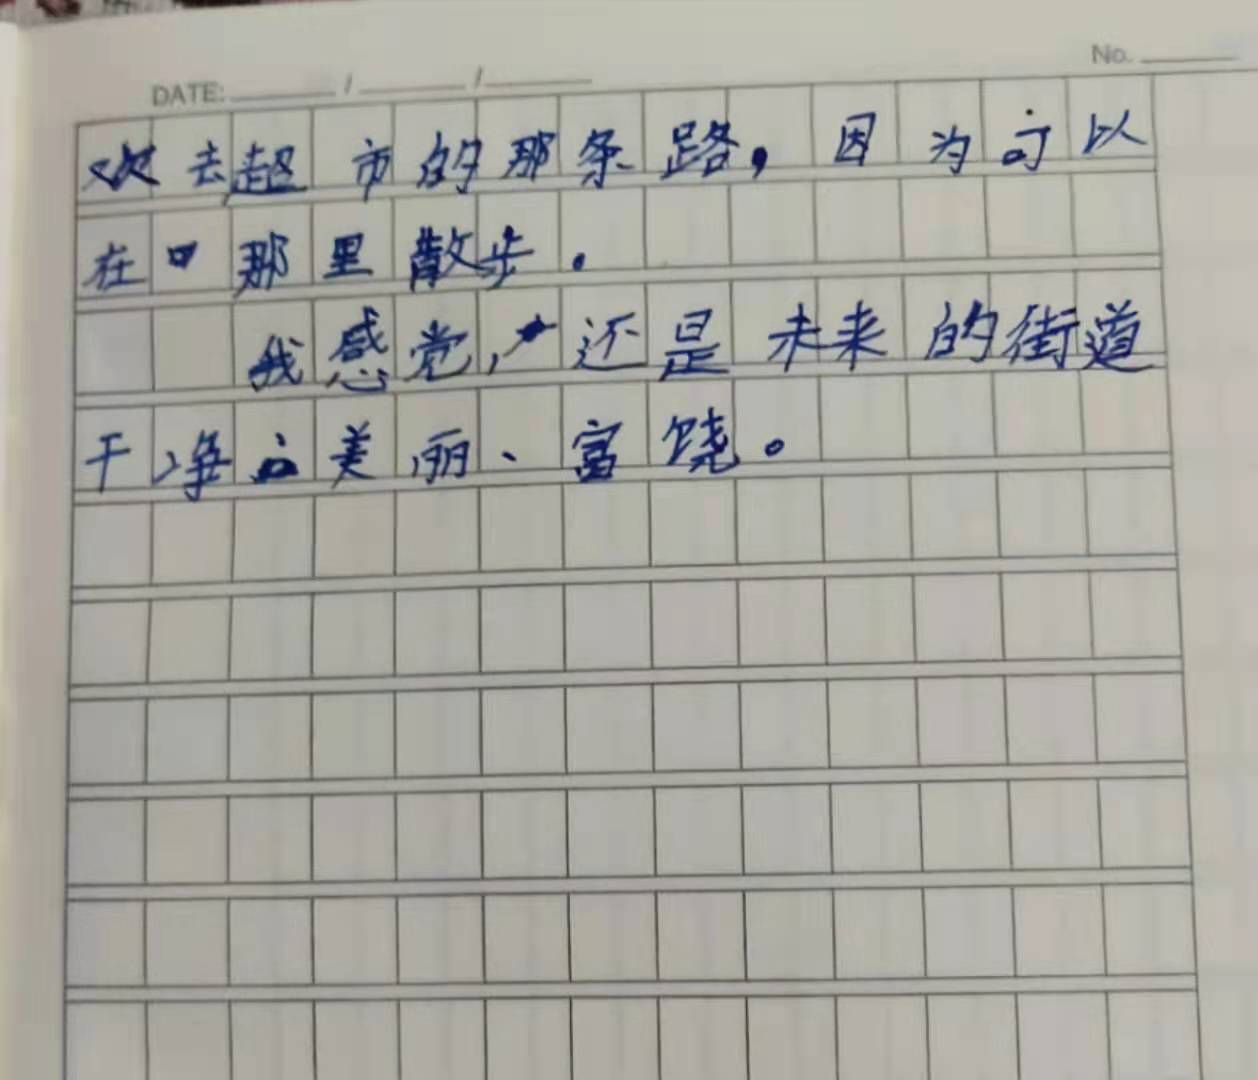 No.
DATE: / /
欢去超市的那条路，因为可以
在那里散步。
我感觉，还是未来的街道
干净、美丽、富饶。